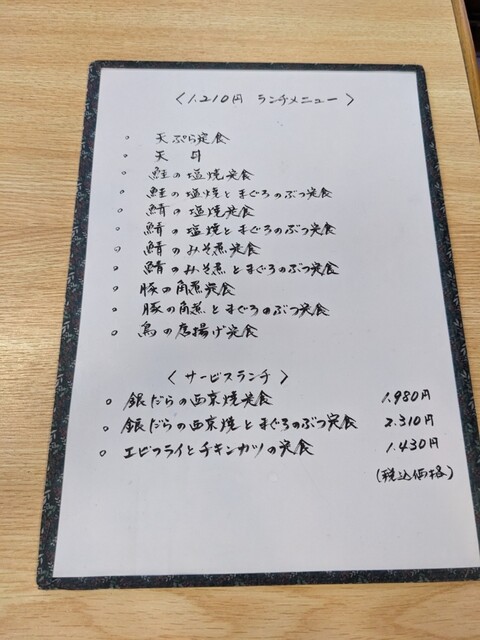 〈 1.210円 ランチメニュー 〉
。 天ぷら定食
。 天 丼
。 鮭の塩焼定食
。 鮭の塩焼とまぐろのぶつ定食
。 鯖の塩焼定食
。 鯖の塩焼とまぐろのぶつ定食
。 鯖のみそ煮定食
。 鯖のみそ煮とまぐろのぶつ定食
。 豚の角煮定食
。 豚の角煮とまぐろのぶつ定食
。 鳥の唐揚げ定食
〈 サービスランチ 〉
。 銀だらの西京焼定食 1.980円
。 銀だらの西京焼とまぐろのぶつ定食 2.310円
。 エビフライとチキンカツの定食 1.430円
(税込価格)